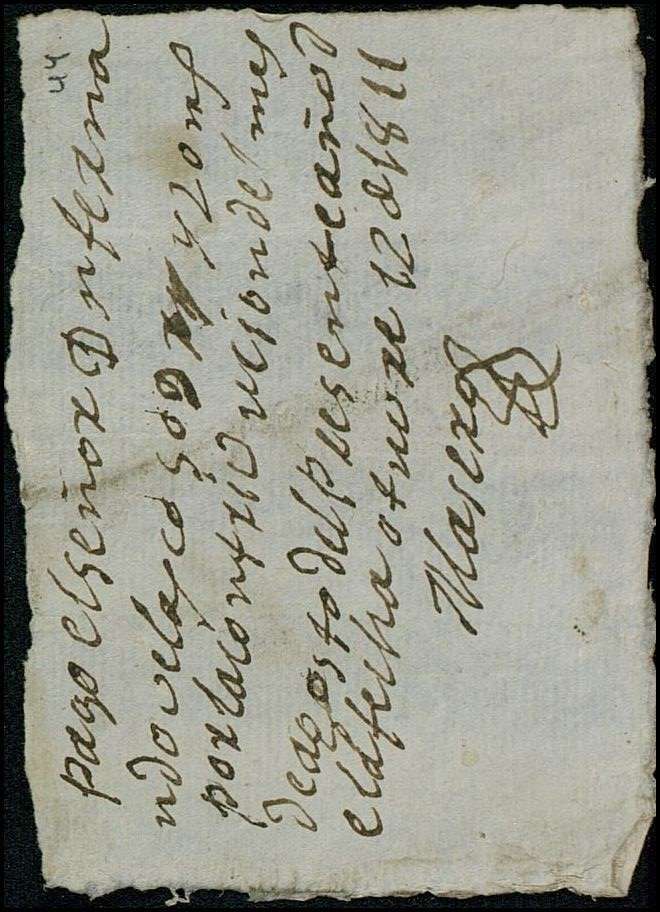 44
pago el señor Dn fexna
ndo velasco 50 D y 4 20 ms
por la contribusion del mes
de agosto del presente año d
e la fecha otuvre 12 d 1811
Masexo